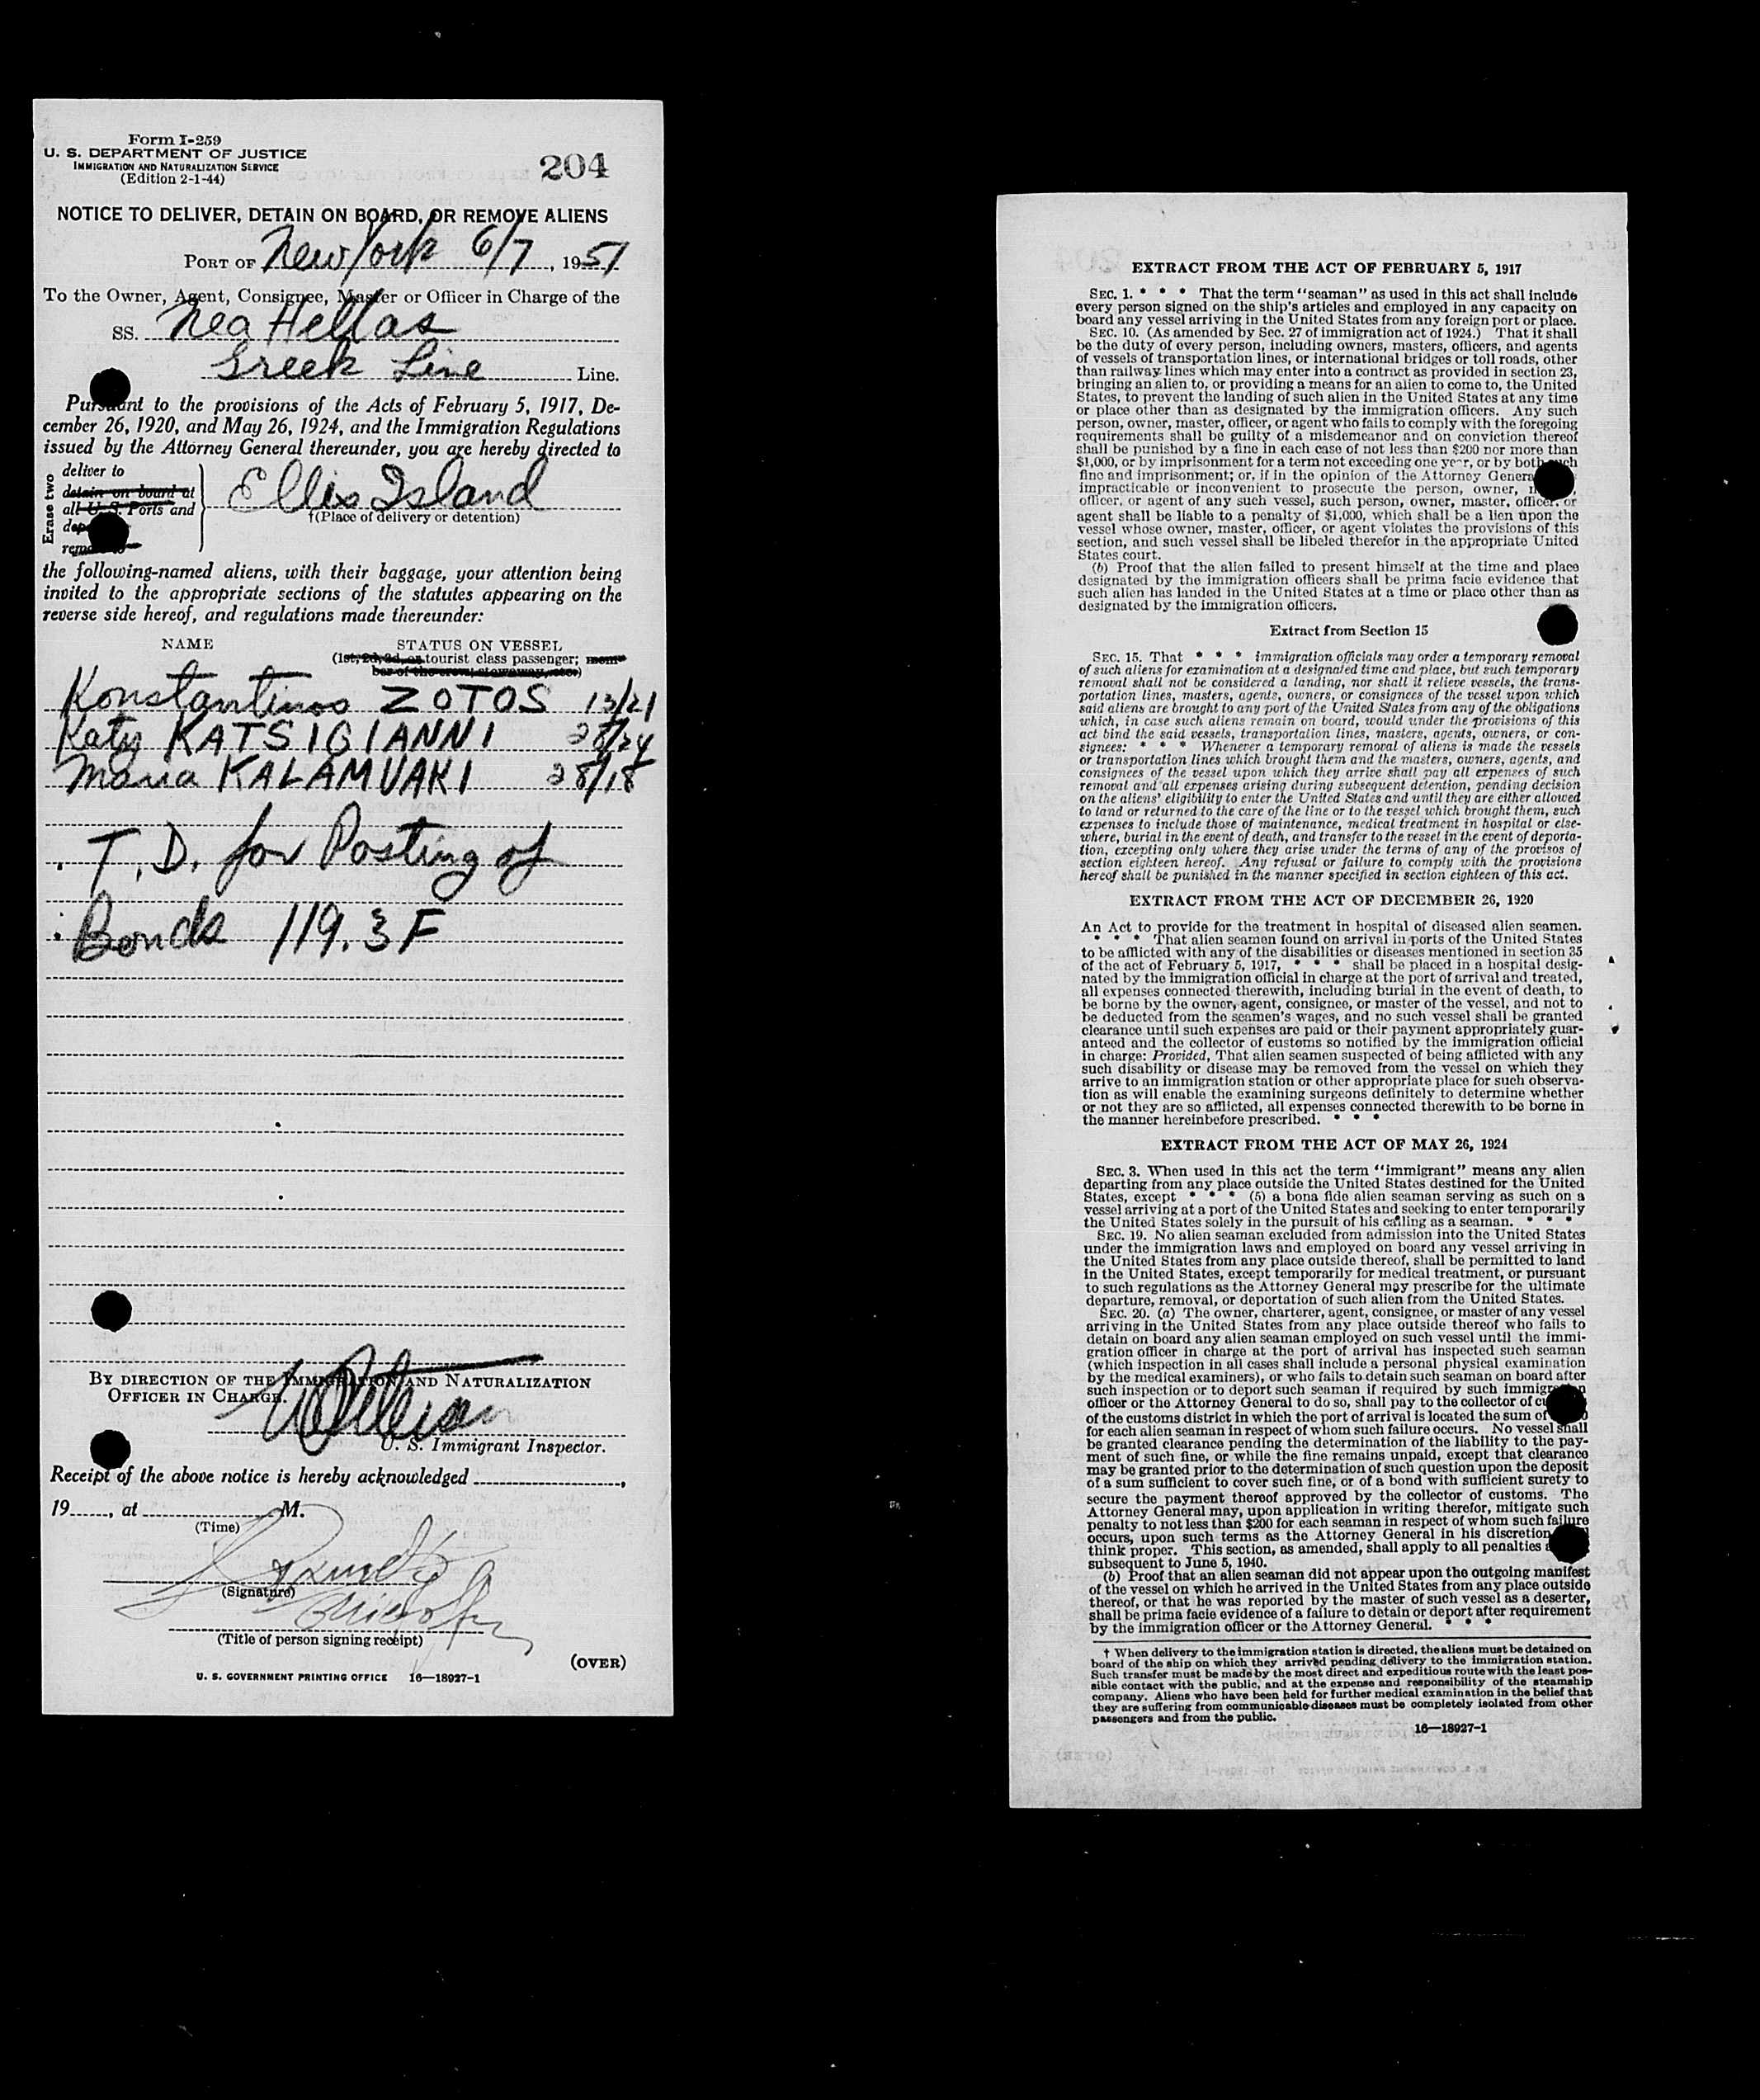 Form I-259
U. S. DEPARTMENT OF JUSTICE
IMMIGRATION AND NATURALIZATION SERVICE
(Edition 2-1-44)
204
NOTICE TO DELIVER, DETAIN ON BOARD, OR REMOVE ALIENS
PORT OF New York 6/7, 1951
To the Owner, Agent, Consignee, Master or Officer in Charge of the
SS. Nea Hellas
Greek Line Line.
Pursuant to the provisions of the Acts of February 5, 1917, De-
cember 26, 1920, and May 26, 1924, and the Immigration Regulations
issued by the Attorney General thereunder, you are hereby directed to
Erase two
deliver to
detain on board at
all U. S. Ports and
remove to
Ellis Island
†(Place of delivery or detention)
the following-named aliens, with their baggage, your attention being
invited to the appropriate sections of the statutes appearing on the
reverse side hereof, and regulations made thereunder:
NAME STATUS ON VESSEL
(1st, 2d, 3d, or tourist class passenger; mem-
ber of the crew; stowaway, etc.)
Konstantinos ZOTOS 13/21
Katy KATSIGIANNI 28/24
Maria KALAMVAKI 28/18
T. D. for Posting of
Bonds 119.3F
BY DIRECTION OF THE IMMIGRATION AND NATURALIZATION
OFFICER IN CHARGE.
U. S. Immigrant Inspector.
Receipt of the above notice is hereby acknowledged ,
19 , at M.
(Time)
(Signature)
(Title of person signing receipt)
(OVER)
U. S. GOVERNMENT PRINTING OFFICE 16—18927-1
EXTRACT FROM THE ACT OF FEBRUARY 5, 1917
SEC. 1. * * * That the term "seaman" as used in this act shall include
every person signed on the ship's articles and employed in any capacity on
board any vessel arriving in the United States from any foreign port or place.
SEC. 10. (As amended by Sec. 27 of immigration act of 1924.) That it shall
be the duty of every person, including owners, masters, officers, and agents
of vessels of transportation lines, or international bridges or toll roads, other
than railway lines which may enter into a contract as provided in section 23,
bringing an alien to, or providing a means for an alien to come to, the United
States, to prevent the landing of such alien in the United States at any time
or place other than as designated by the immigration officers. Any such
person, owner, master, officer, or agent who fails to comply with the foregoing
requirements shall be guilty of a misdemeanor and on conviction thereof
shall be punished by a fine in each case of not less than $200 nor more than
$1,000, or by imprisonment for a term not exceeding one year, or by both such
fine and imprisonment; or, if in the opinion of the Attorney General
impracticable or inconvenient to prosecute the person, owner,
officer, or agent of any such vessel, such person, owner, master, officer, or
agent shall be liable to a penalty of $1,000, which shall be a lien upon the
vessel whose owner, master, officer, or agent violates the provisions of this
section, and such vessel shall be libeled therefor in the appropriate United
States court.
(b) Proof that the alien failed to present himself at the time and place
designated by the immigration officers shall be prima facie evidence that
such alien has landed in the United States at a time or place other than as
designated by the immigration officers.
Extract from Section 15
SEC. 15. That * * * immigration officials may order a temporary removal
of such aliens for examination at a designated time and place, but such temporary
removal shall not be considered a landing, nor shall it relieve vessels, the trans-
portation lines, masters, agents, owners, or consignees of the vessel upon which
said aliens are brought to any port of the United States from any of the obligations
which, in case such aliens remain on board, would under the provisions of this
act bind the said vessels, transportation lines, masters, agents, owners, or con-
signees: * * * Whenever a temporary removal of aliens is made the vessels
or transportation lines which brought them and the masters, owners, agents, and
consignees of the vessel upon which they arrive shall pay all expenses of such
removal and all expenses arising during subsequent detention, pending decision
on the aliens' eligibility to enter the United States and until they are either allowed
to land or returned to the care of the line or to the vessel which brought them, such
expenses to include those of maintenance, medical treatment in hospital or else-
where, burial in the event of death, and transfer to the vessel in the event of deporta-
tion, excepting only where they arise under the terms of any of the provisos of
section eighteen hereof. Any refusal or failure to comply with the provisions
hereof shall be punished in the manner specified in section eighteen of this act.
EXTRACT FROM THE ACT OF DECEMBER 26, 1920
An Act to provide for the treatment in hospital of diseased alien seamen.
* * * That alien seamen found on arrival in ports of the United States
to be afflicted with any of the disabilities or diseases mentioned in section 35
of the act of February 5, 1917, * * * shall be placed in a hospital desig-
nated by the immigration official in charge at the port of arrival and treated,
all expenses connected therewith, including burial in the event of death, to
be borne by the owner, agent, consignee, or master of the vessel, and not to
be deducted from the seamen's wages, and no such vessel shall be granted
clearance until such expenses are paid or their payment appropriately guar-
anteed and the collector of customs so notified by the immigration official
in charge: Provided, That alien seamen suspected of being afflicted with any
such disability or disease may be removed from the vessel on which they
arrive to an immigration station or other appropriate place for such observa-
tion as will enable the examining surgeons definitely to determine whether
or not they are so afflicted, all expenses connected therewith to be borne in
the manner hereinbefore prescribed. * * *
EXTRACT FROM THE ACT OF MAY 26, 1924
SEC. 3. When used in this act the term "immigrant" means any alien
departing from any place outside the United States destined for the United
States, except * * * (5) a bona fide alien seaman serving as such on a
vessel arriving at a port of the United States and seeking to enter temporarily
the United States solely in the pursuit of his calling as a seaman. * * *
SEC. 19. No alien seaman excluded from admission into the United States
under the immigration laws and employed on board any vessel arriving in
the United States from any place outside thereof, shall be permitted to land
in the United States, except temporarily for medical treatment, or pursuant
to such regulations as the Attorney General may prescribe for the ultimate
departure, removal, or deportation of such alien from the United States.
SEC. 20. (a) The owner, charterer, agent, consignee, or master of any vessel
arriving in the United States from any place outside thereof who fails to
detain on board any alien seaman employed on such vessel until the immi-
gration officer in charge at the port of arrival has inspected such seaman
(which inspection in all cases shall include a personal physical examination
by the medical examiners), or who fails to detain such seaman on board after
such inspection or to deport such seaman if required by such immigration
officer or the Attorney General to do so, shall pay to the collector of
of the customs district in which the port of arrival is located the sum of
for each alien seaman in respect of whom such failure occurs. No vessel shall
be granted clearance pending the determination of the liability to the pay-
ment of such fine, or while the fine remains unpaid, except that clearance
may be granted prior to the determination of such question upon the deposit
of a sum sufficient to cover such fine, or of a bond with sufficient surety to
secure the payment thereof approved by the collector of customs. The
Attorney General may, upon application in writing therefor, mitigate such
penalty to not less than $200 for each seaman in respect of whom such failure
occurs, upon such terms as the Attorney General in his discretion
think proper. This section, as amended, shall apply to all penalties
subsequent to June 5, 1940.
(b) Proof that an alien seaman did not appear upon the outgoing manifest
of the vessel on which he arrived in the United States from any place outside
thereof, or that he was reported by the master of such vessel as a deserter,
shall be prima facie evidence of a failure to detain or deport after requirement
by the immigration officer or the Attorney General. * * *
† When delivery to the immigration station is directed, the aliens must be detained on
board of the ship on which they arrived pending delivery to the immigration station.
Such transfer must be made by the most direct and expeditious route with the least pos-
sible contact with the public, and at the expense and responsibility of the steamship
company. Aliens who have been held for further medical examination in the belief that
they are suffering from communicable diseases must be completely isolated from other
passengers and from the public.
16—18927-1